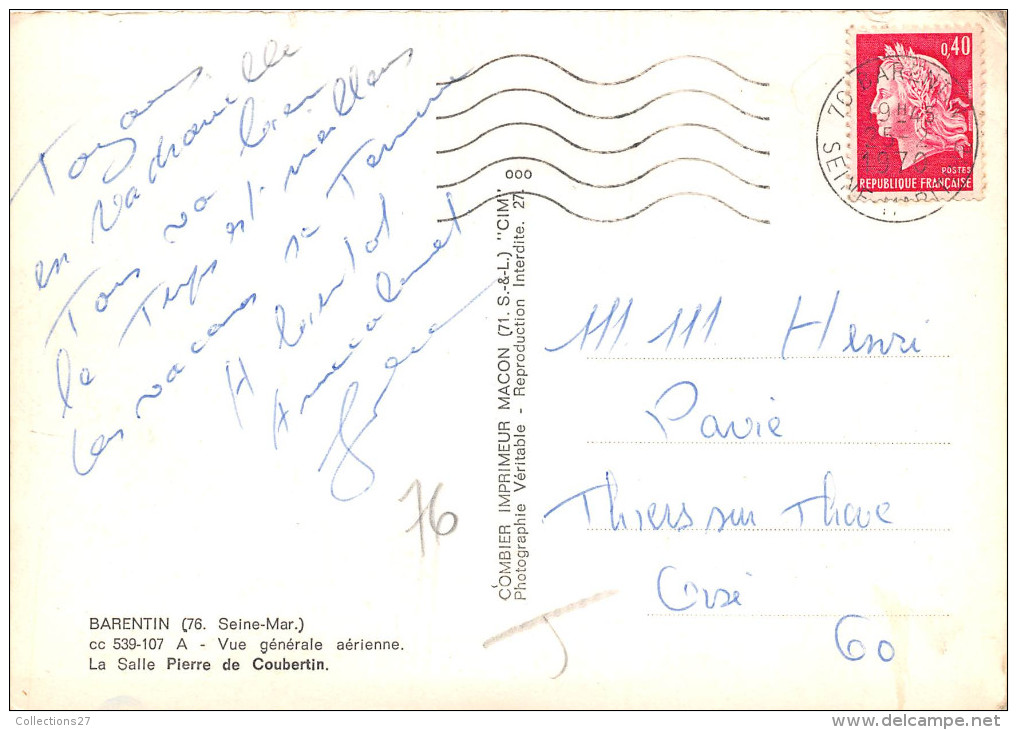 Toujours
en vadrouille
Tous va bien
le Temps est meilleur
les vacances se Termine
A bientot
Amicalement
0,40
POSTES
REPUBLIQUE FRANÇAISE
76 BARENTIN
1970
SEINE MARITIME
ooo
COMBIER IMPRIMEUR MACON (71. S.-&-L.) "CIM"
Photographie Véritable - Reproduction Interdite. 27.
M. M. Henri
Pavie
Thiers sur Thève
Oise
60
76
BARENTIN (76. Seine-Mar.)
cc 539-107 A - Vue générale aérienne.
La Salle Pierre de Coubertin.
Collections27
delcampe.net